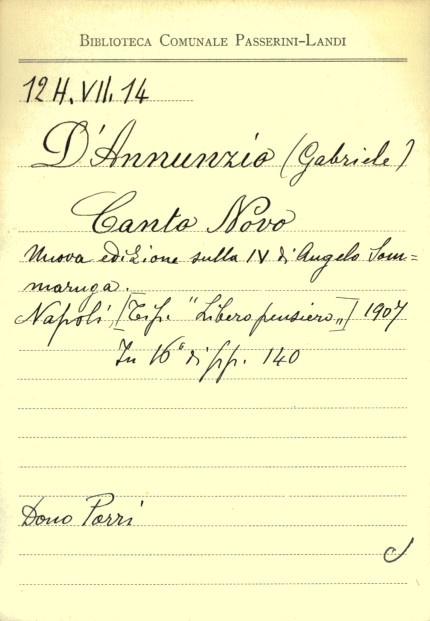 BIBLIOTECA COMUNALE PASSERINI-LANDI
12 H. VII. 14
D'Annunzio (Gabriele)
Canto Novo
Nuova edizione sulla IV di Angelo Som=
maruga.
Napoli, [Tip. "Libero pensiero„] 1907
In 16° di pp. 140
Dono Porri